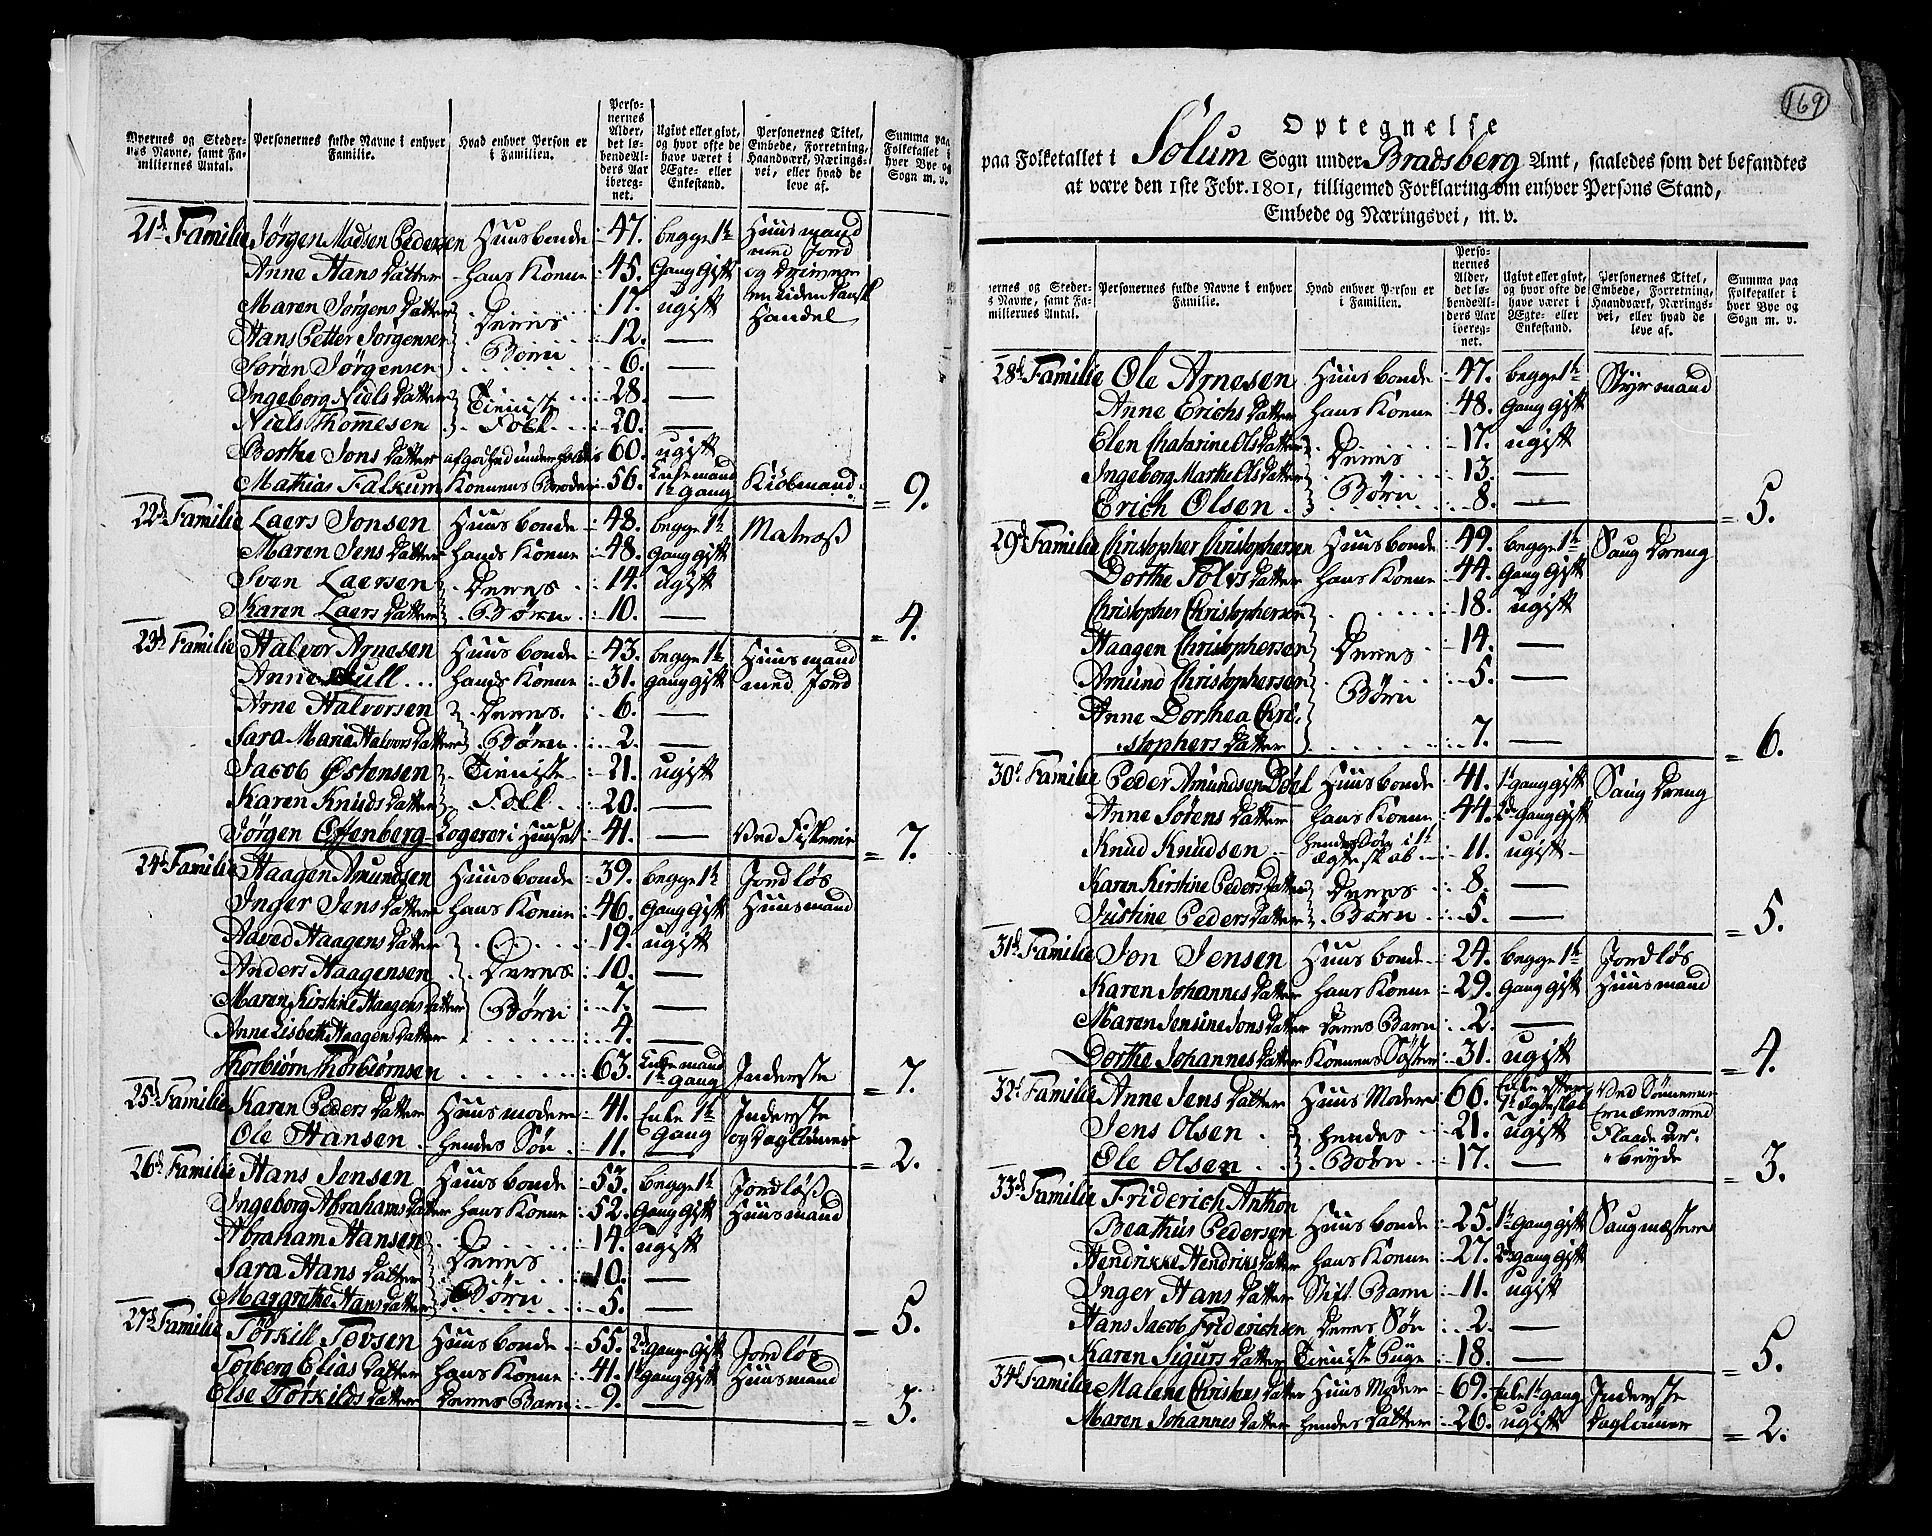 Byernes og Steder-
nes Navne, samt Fa-
miliernes Antal.
Personernes fulde Navne i enhver
Familie.
Hvad enhver Person er
i Familien.
Perso-
nernes
Alder,
det lø-
bende Al-
ders Aar
iberegn-
net.
Ugivt eller givt,
og hvor ofte de
have været i
Ægte- eller
Enkestand.
Personernes Titel,
Embede, Forretning,
Haandværk, Nærings-
vei, eller hvad de
leve af.
Summa paa
Folketallet i
hver Bye og
Sogn m. v.
21de Familie Jørgen Madsen Pedersen Huusbonde 47. begge 1te Huusmand
med Jord
Anne Hans Datter hans Konne 45. Gang Gift og driver
Maren Jørgens Datter Deres 17. ugift en liden Dansk
Handel
Hans Petter Jørgensen Børn 12. —
Søren Jørgensen 6. —
Ingeborg Niels Datter Tieniste 28. —
Niels Thomesen Folk 20. —
Berthe Jons Datter af godhed underholdes 60. ugift
Mathias Falkum Konnens Broder 56. Enkemand 1te Gang Kiøbmand = 9.
22de Familie Laers Jonsen Huusbonde 48. begge 1te Matros
Maren Jens Datter hands Konne 48. Gang gift
Sven Laersen Deres 14. ugift
Karen Laers Datter Børn 10. — = 4.
23de Familie Halvor Arnesen Huusbonde 43. begge 1te Huusmand
Anne Jull hands Konne 31. gang gift med Jord
Arne Halvorsen Deres 6. —
Sara Maria Halvors Datter Børn 2. —
Jacob Østensen Tieniste 21. ugift
Karen Knuds Datter Folk 20. —
Jørgen Effenberg Logerer i Huuset 41. — Ved Fiskerie = 7.
24de Familie Haagen Amundsen Huusbonde 39. begge 1te Jordløs
Inger Jens Datter hans Konne 46. Gang Gift Huusmand
Aaved Haagens Datter 19. ugift
Anders Haagensen Deres 10. —
Maren Kirstine Haagens Datter Børn 7. —
Anne Lisbeth Haagens Datter 4. —
Thorbiørn Thorbiørnsen 63. Enkemand 1te Gang Inderste = 7.
25de Familie Karen Peders Datter Huusmoder 41. Enke 1te Inderste
Gang
Ole Hansen hendes Søn 11. — og Daglønner = 2.
26de Familie Hans Jensen Huusbonde 53. begge 1te Jordløs
Ingeborg Abrahams Datter hans Konne 52. Gang Gift Huusmand
Abraham Hansen 14. ugift
Sara Hans Datter Deres 10. —
Margrethe Hans Datter Børn 5. — = 5.
27de Familie Torkill Tovsen Huusbonde 55. 2den Gange Gift Jordløs
Torberg Elias Datter hans Konne 41. 1te Gang Gift Huusmand
Else Torkilds Datter Deres Barn 9. — = 3.
169
Optegnelse
paa Folketallet i Solum Sogn under Bradsberg Amt, saaledes som det befandtes
at være den 1ste Febr. 1801, tilligemed Forklaring om enhver Persons Stand,
Embede og Næringsvei, m. v.
ernes og Steder-
s Navne, samt Fa-
miliernes Antal.
Personernes fulde Navne i enhver
Familie.
Hvad enhver Person er
i Familien.
Perso-
nernes
Alder,
det lø-
bende Al-
ders Aar
iberegn-
net.
Ugivt eller givt,
og hvor ofte de
have været i
Ægte- eller
Enkestand.
Personernes Titel,
Embede, Forretning,
Haandværk, Nærings-
vei, eller hvad de
leve af.
Summa paa
Folketallet i
hver Bye og
Sogn m. v.
28de Familie Ole Arnesen Huusbonde 47. begge 1te Styrmand
Anne Erichs Datter hans Konne 48. Gang Gift
Elen Chatarine Ols Datter Deres 17. ugift
Ingeborg Marthe Ols Datter Børn 13. —
Erich Olsen 8. — = 5.
29de Familie Christopher Christophersen Huusbonde 49. begge 1te Saug Dreng
Dorthe Tolvs Datter hans Konne 44. Gang Gift
Christopher Christophersen 18. ugift
Haagen Christophersen Deres 14. —
Amund Christophersen Børn 5. —
Anne Dorthea Chri-
stophers Datter 7. — = 6.
30te Familie Peder Amundsen Døel Huusbonde 41. 1te gang gift Saug Dreng
Anne Sørens Datter hans Konne 44. 2den Gang Gift
Knud Knudsen hendes Søn i 1te Ægteskab 11. ugift
Karen Kirstine Peders Datter Deres 8. —
Justine Peders Datter Børn 5. — = 5.
31de Familie Jon Jensen Huusbonde 24. begge 1te Jordløs
Karen Johannes Datter hans Konne 29. Gang Gift Huusmand
Maren Jensine Jons Datter Deres Barn 2. —
Dorthe Johannes Datter Konnens Søster 31. ugift = 4.
32de Familie Anne Jens Datter Huus Moder 66. Enke efter 1te Ægteskab Ved Sønnernes
Jens Olsen hendes 21. ugift Ernæres med
Flaade Ar-
Ole Olsen Børn 17. — beyde = 3.
33de Familie Friderich Anthon
Beathus Pedersen Huusbonde 25. 1te Gang gift Saugmæster
Hendrikke Hendriks Datter hans Konne 27. 2den Gang Gift
Inger Hans Datter Stif Barn 11. ugift
Hans Jacob Friderichsen Deres Søn 2. —
Karen Sigurs Datter Tieniste Pige 18. — = 5.
34de Familie Malene Christens Datter Huus Moder 69. Enke 1te gang Inderste
Maren Johannes Datter hendes Datter 26. ugift Daglønner = 2.